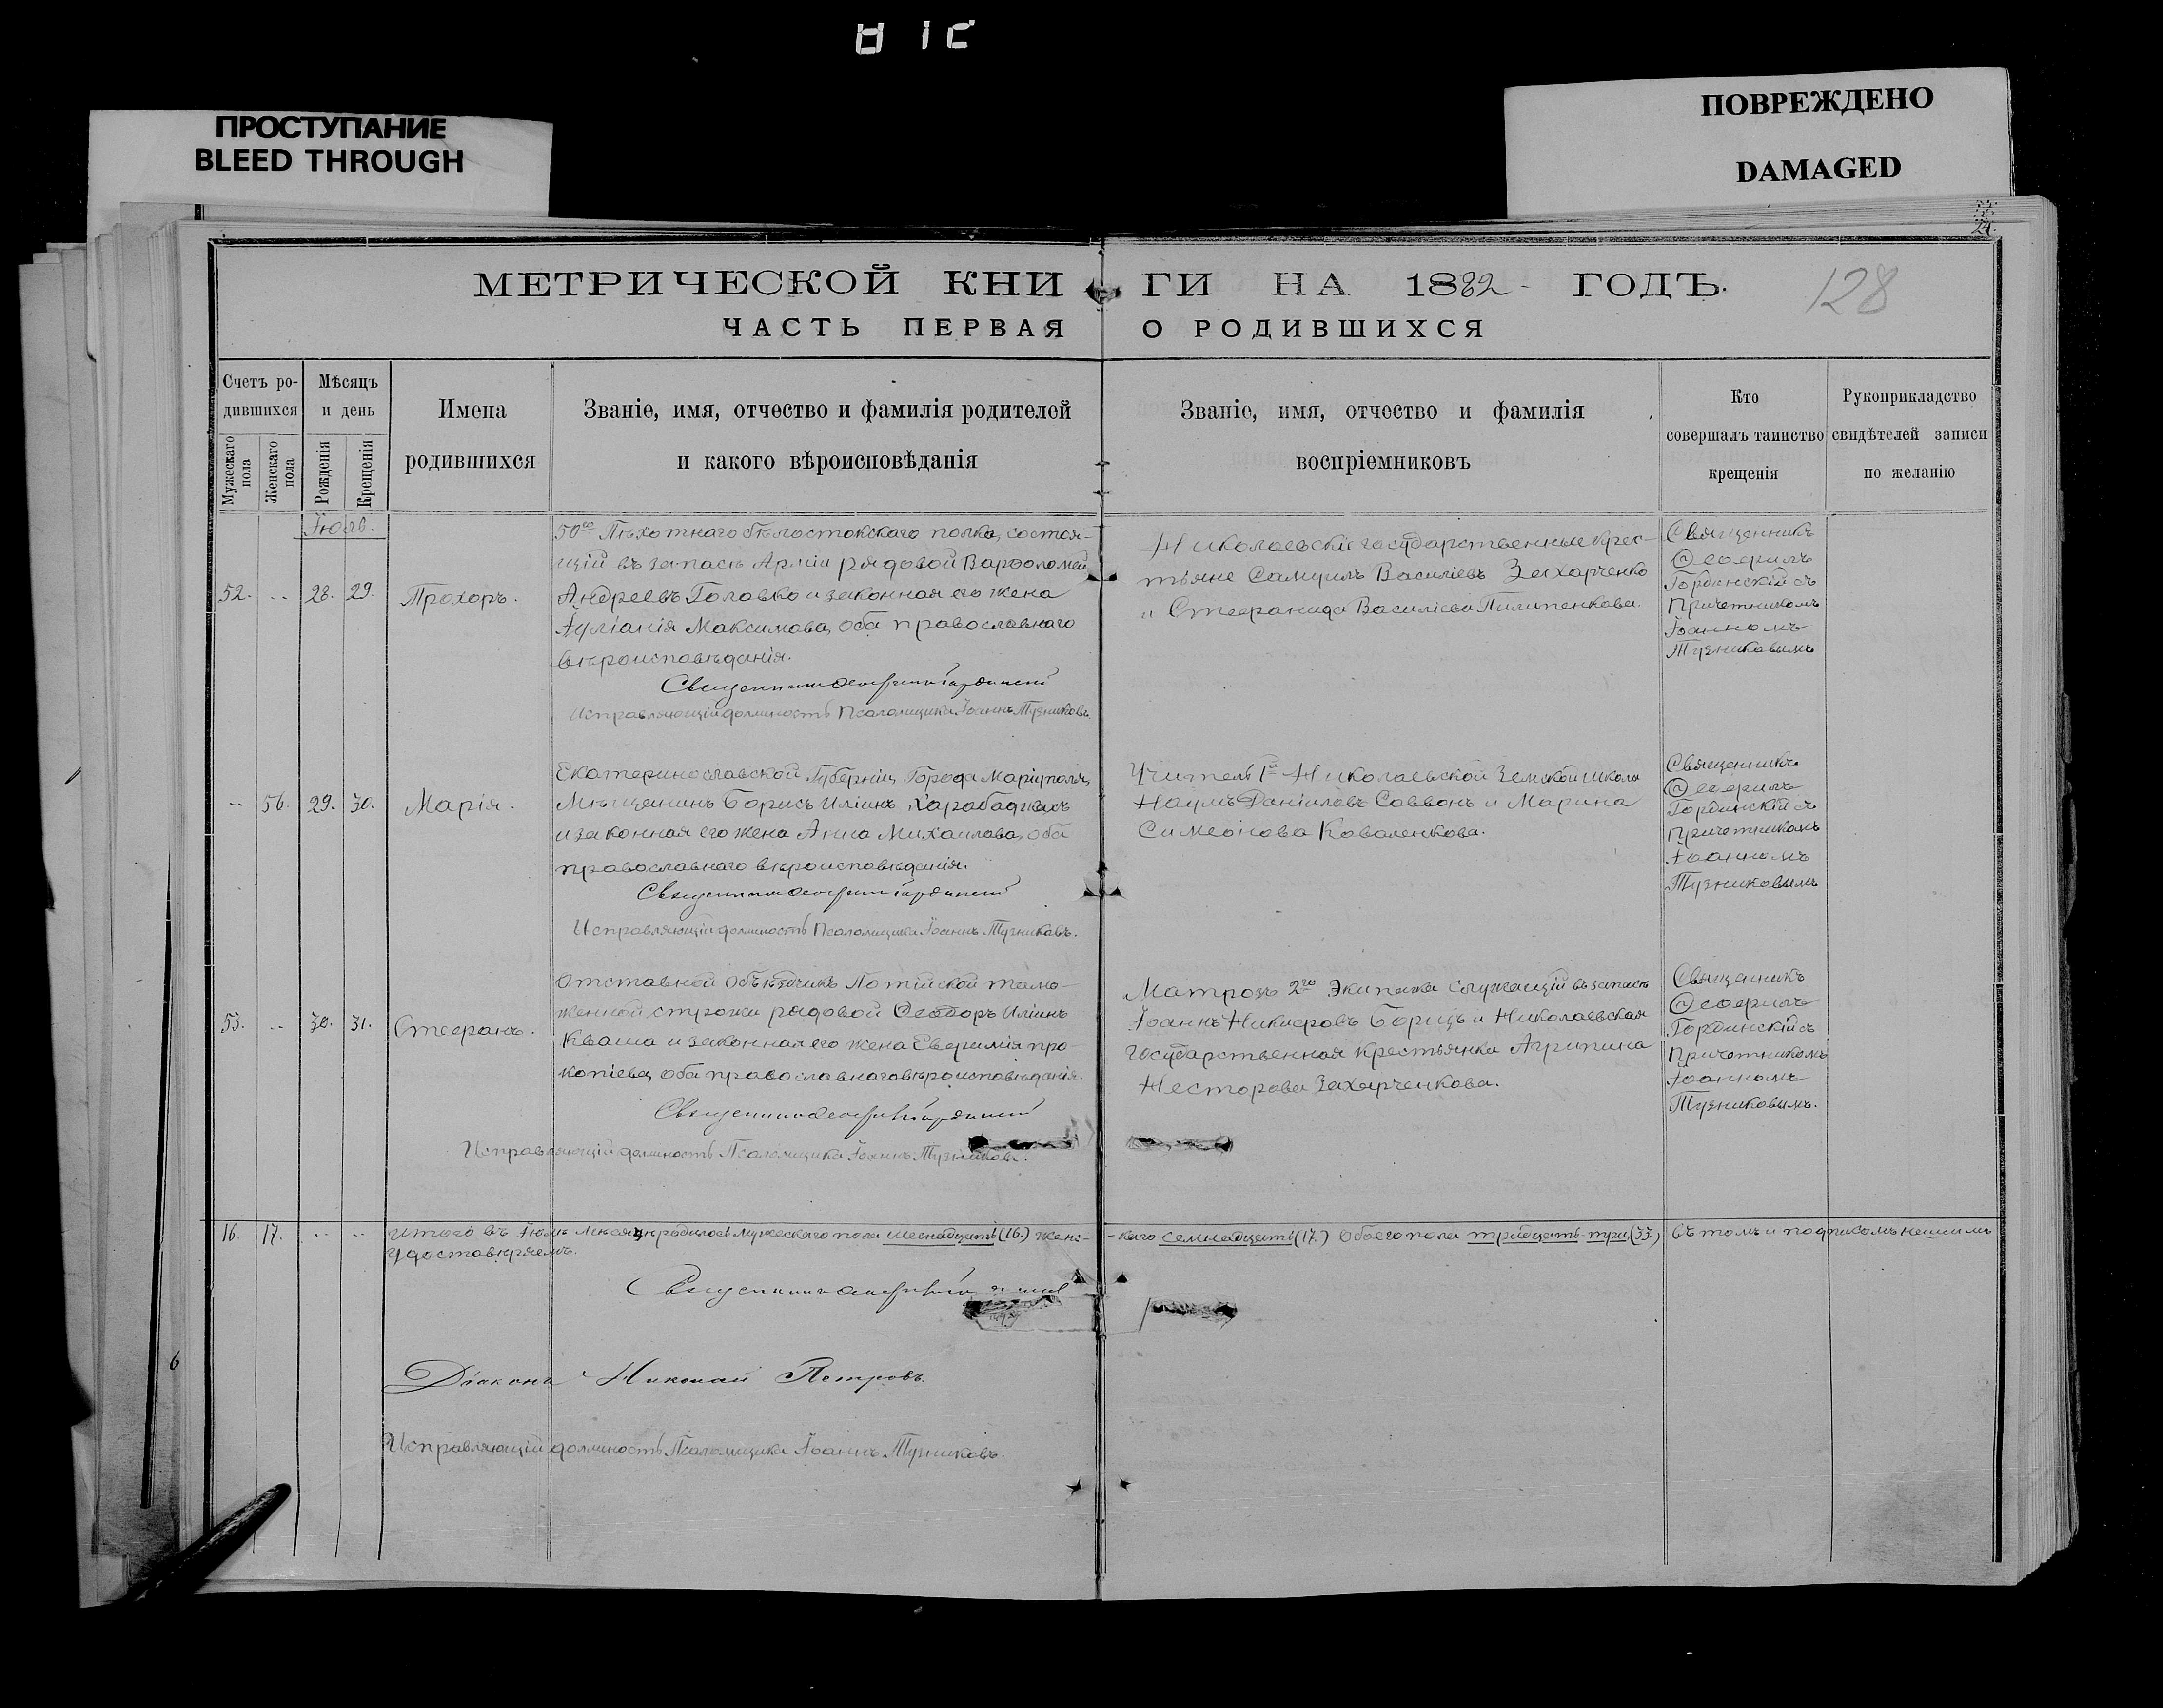 ПРОСТУПАНИЕ
BLEED THROUGH
ПОВРЕЖДЕНО
DAMAGED
МЕТРИЧЕСКОЙ КНИГИ НА 1882 ГОДЪ.
128
ЧАСТЬ ПЕРВАЯ О РОДИВШИХСЯ
Счетъ ро-
дившихся
Мужескаго пола
Женскаго пола
Мѣсяцъ
и день
Рожденія
Крещенія
Имена
родившихся
Званіе, имя, отчество и фамилія родителей
и какого вѣроисповѣданія
Званіе, имя, отчество и фамилія
воспріемниковъ
Кто
совершалъ таинство
крещенія
Рукоприкладство
свидѣтелей записи
по желанію
Іюль.
52. -- 28. 29.
Прохоръ.
50го Пѣхотнаго бѣлостокскаго полка, состоя-
щій въ запасѣ Арміи рядовой Варѳоломей
Андреевъ Головко и законная его жена
Іуліанія Максимова, оба православнаго
вѣроисповѣданія.
Священникъ Ѳеофилъ Гординскій
Исправляющій должность Псаломщика Іоаннъ Тузниковъ.
Николаевскіе государственные крес-
тьяне Самуилъ Василіевъ Захарченко
и Стефанида Василіева Пилипенкова.
Священникъ
Ѳеофилъ
Гординскій съ
Причетникомъ
Іоанномъ
Тузниковымъ
-- 56. 29. 30.
Марія.
Екатеринославской Губерніи, Города Маріуполя,
Мѣщанинъ Борисъ Иліинъ Карабаджахъ
и законная его жена Анна Михаилова, оба
православнаго вѣроисповѣданія.
Священникъ Ѳеофилъ Гординскій
Исправляющій должность Псаломщика Іоаннъ Тузниковъ.
Учитель 1й Николаевской Земской школы
Наумъ Даніиловъ Саввонъ и Марина
Симеонова Коваленкова.
Священникъ
Ѳеофилъ
Гординскій съ
Причетникомъ
Іоанномъ
Тузниковымъ
53. -- 30. 31.
Стефанъ.
Отставной объѣздчикъ Потійской тамо-
женной стражи рядовой Ѳеодоръ Иліинъ
Кваша и законная его жена Евфимія про-
копіева, оба православнаго вѣроисповѣданія.
Священникъ Ѳеофилъ Гординскій
Исправляющій должность Псаломщика Іоаннъ Тузниковъ.
Матрозъ 2го Экипажа служащій въ запасѣ
Іоаннъ Никифоровъ Борицъ и Николаевская
государственная крестьянка Агрипина
Несторова Захарченкова.
Священникъ
Ѳеофилъ
Гординскій съ
Причетникомъ
Іоанномъ
Тузниковымъ.
16. 17. -- -- Итого въ Іюлѣ мѣсяцѣ родилось мужескаго пола шеснадцать (16.) женс-
-каго семнадцать (17.) Обоего пола тридцать-три. (33.) въ томъ и подписомъ нашимъ
удостовѣряемъ.
Священникъ Ѳеофилъ
Діаконъ Николай Петровъ.
Исправляющій должность Псаломщика Іоаннъ Тузниковъ.